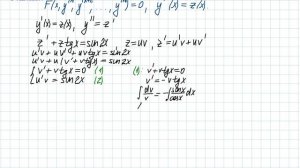 F(x, y', y'', ..., y⁽ⁿ⁾) = 0, y'(x) = z(x).
y'(x) = z(x), y'' = z'
z' + z tgx = sin2x    z = uv, z' = u'v + uv'
u'v + uv' + uv tgx = sin2x
u'v + u(v' + v tgx) = sin2x
{ v' + v tgx = 0 (1)    (1) v' + v tgx = 0
{ u'v = sin2x (2)    v' = -v tgx
∫ dv/v = -∫ sinx/cosx dx